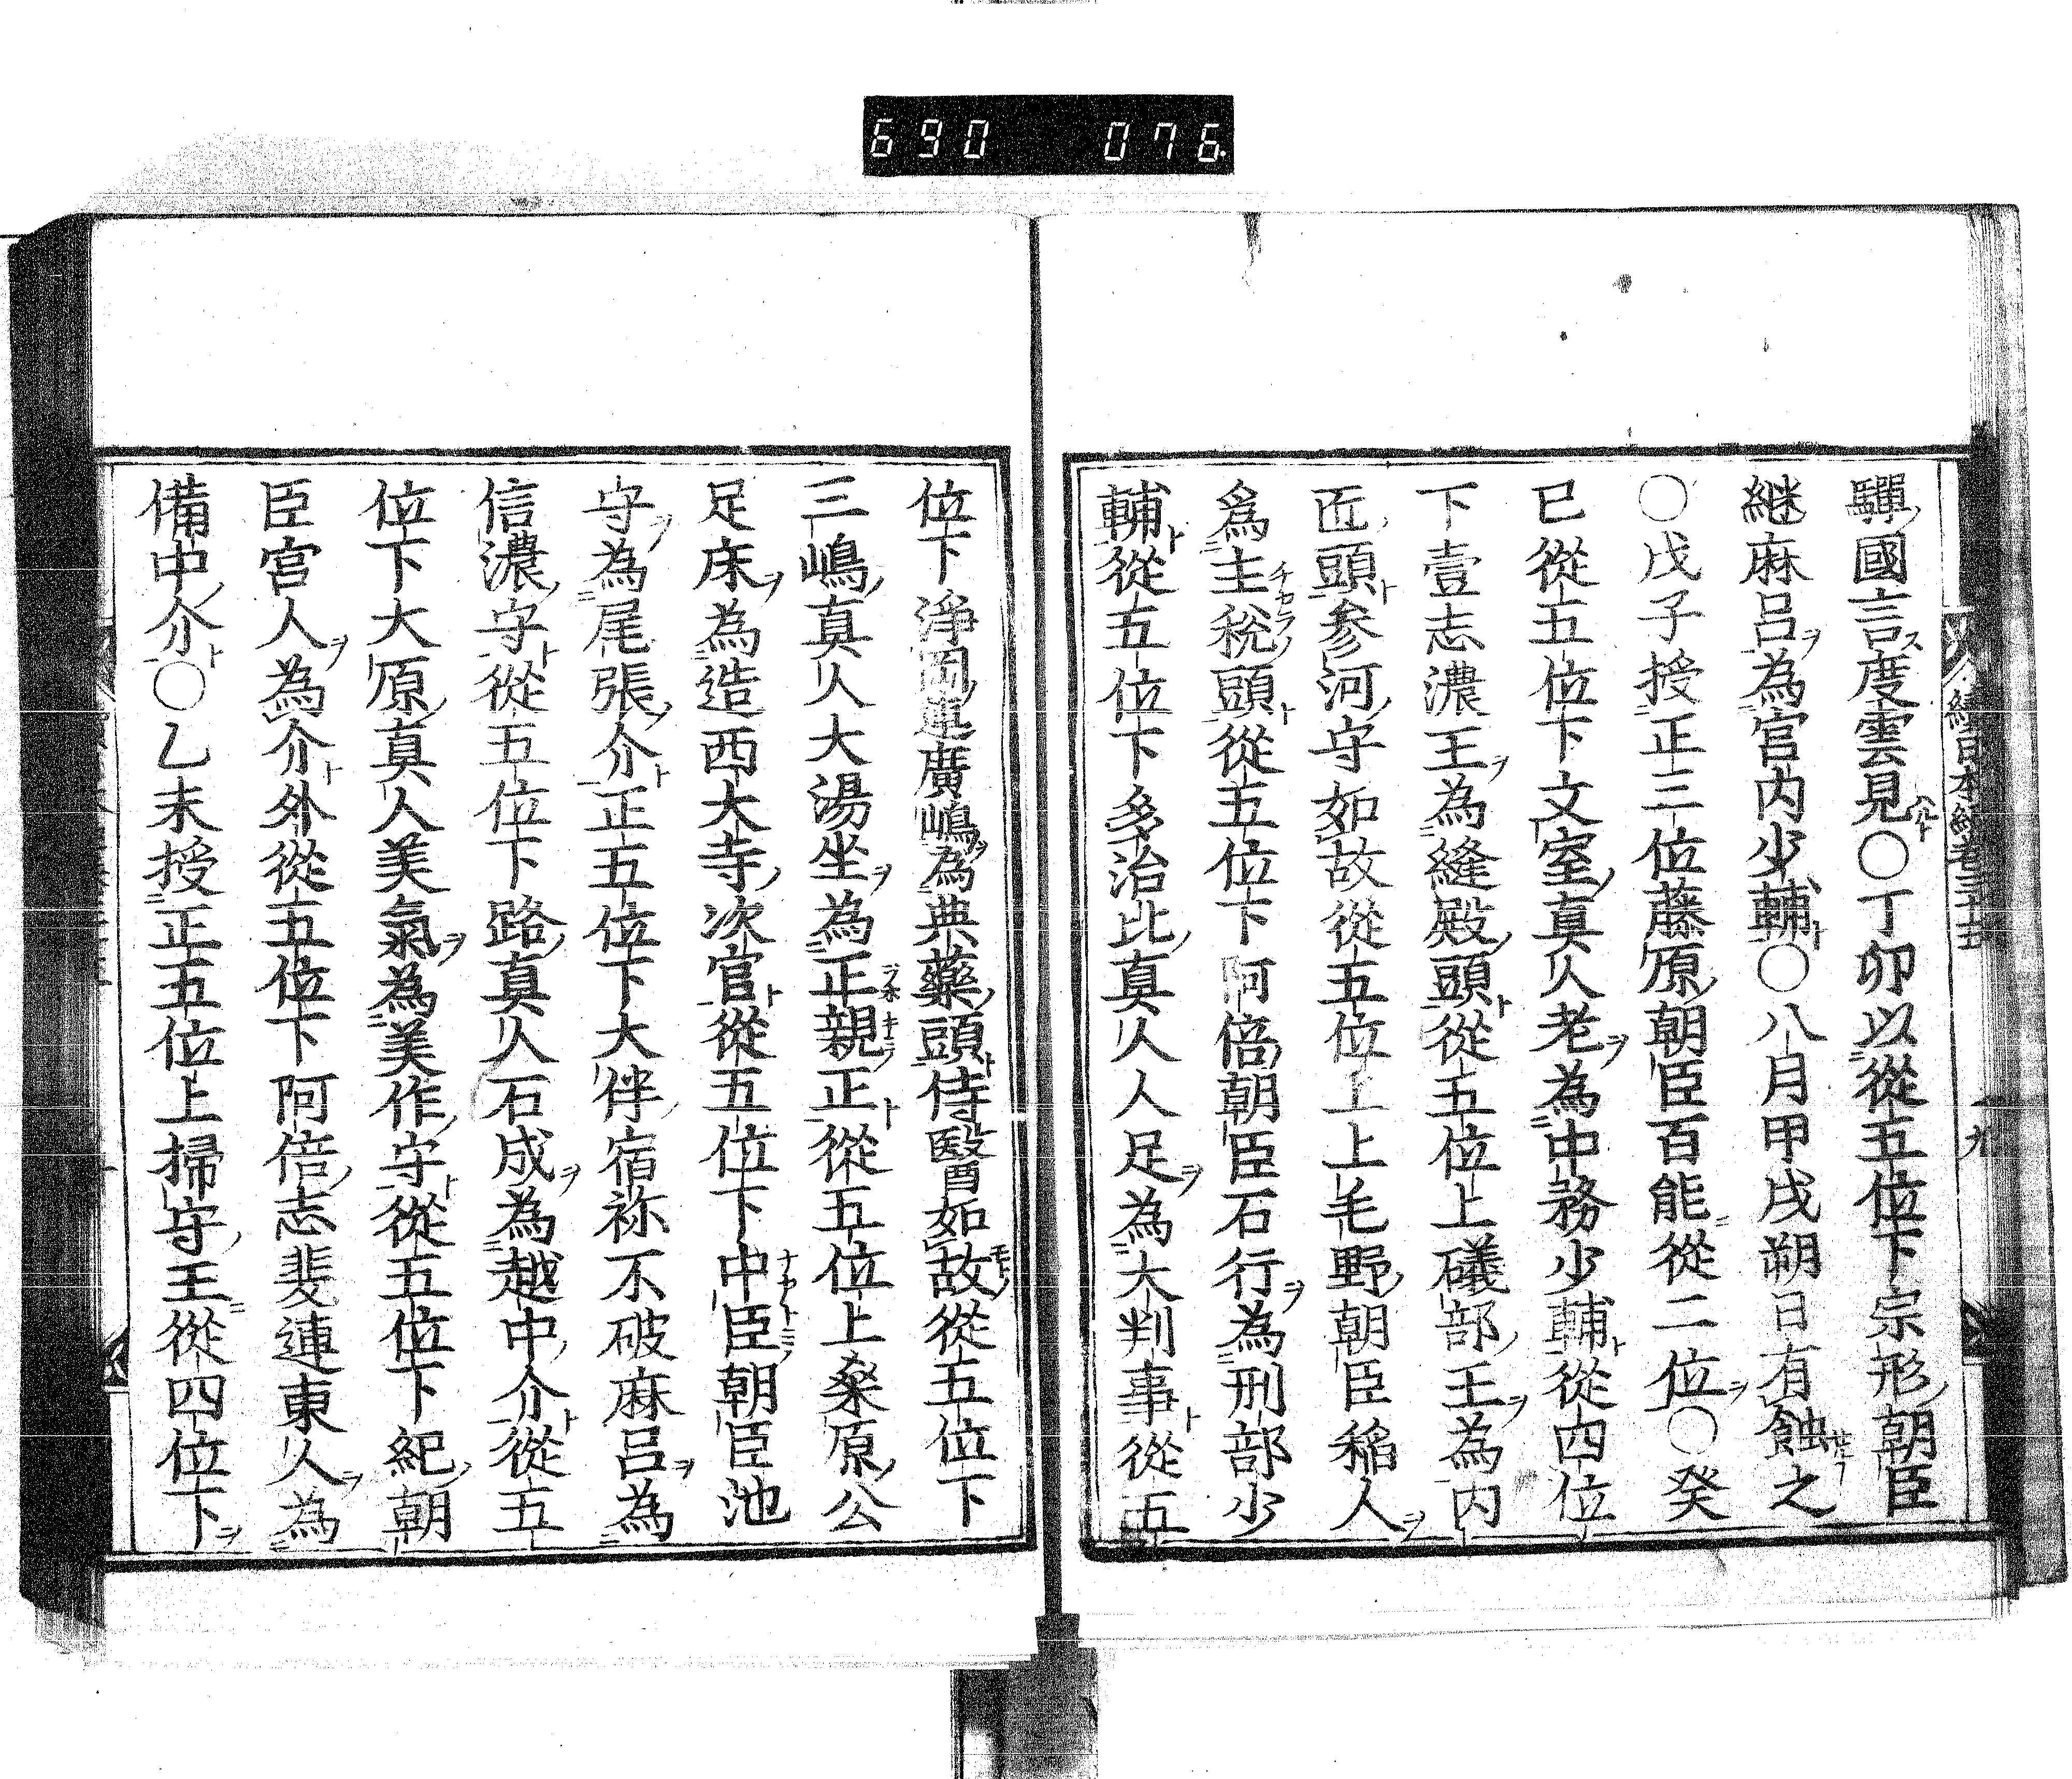 690 076
驒國言度雲見○丁卯以從五位下宗形朝臣
継麻呂為宮内少輔○八月甲戌朔日有蝕之
○戊子授正三位藤原朝臣百能從二位○癸
巳從五位下文室真人老為中務少輔從四位
下壹志濃王為縫殿頭從五位上礒部王為内
匠頭参河守如故從五位上上毛野朝臣稲人
爲主税頭從五位下阿倍朝臣石行為刑部少
輔從五位下多治比真人人足為大判事從五
位下淨岡連廣嶋為典藥頭侍醫如故從五位下
三嶋真人大湯坐為正親正從五位上桑原公
足床為造西大寺次官從五位下中臣朝臣池
守為尾張介正五位下大伴宿祢不破麻呂為
信濃守從五位下路真人石成為越中介從五
位下大原真人美氣為美作守從五位下紀朝
臣宮人為介外從五位下阿倍志斐連東人為
備中介○乙未授正五位上掃守王從四位下